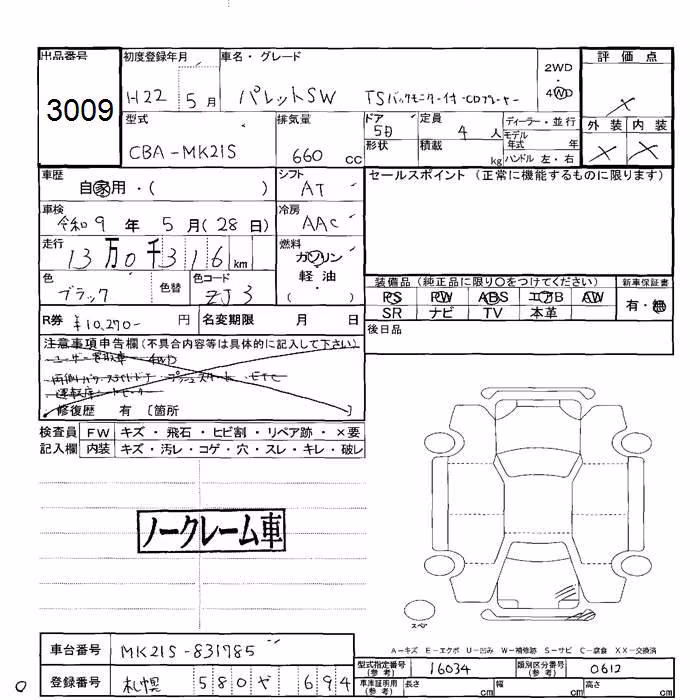 出品番号 初度登録年月 車名・グレード 2WD・4WD 評価点
3009 H22 5月 パレットSW TSバックモニター付・CDプレーヤー ×
型式 排気量 ドア 定員 ディーラー・並行 外装 内装
CBA-MK21S 660 cc 5D 4人 モデル年式 年 × ×
形状 積載 kg ハンドル 左・右
車歴 自家用・( ) シフト AT セールスポイント (正常に機能するものに限ります)
車検 令和9年 5月(28日) 冷房 AAC
走行 13万0千316km 燃料 ガソリン・軽油・( )
色 ブラック 色替 色コード ZJ3
装備品 (純正品に限り○をつけてください) 新車保証書
PS PW ABS エアB AW 有・無
SR ナビ TV 本革
R券 ¥10,270- 円 名変期限 月 日 後日品
注意事項申告欄(不具合内容等は具体的に記入して下さい)
ユーザー買取車 4WD
両側パワースライドドア プッシュスタート ETC
運転席シートヒーター
修復歴 有 〔箇所 〕
検査員 FW キズ・飛石・ヒビ割・リペア跡・×要
記入欄 内装 キズ・汚レ・コゲ・穴・スレ・キレ・破レ
ノークレーム車
スペア
A-キズ E-エクボ U-凹み W-補修跡 S-サビ C-腐食 XX-交換済
車台番号 MK21S-831785
型式指定番号(参考) 16034 類別区分番号(参考) 0612
登録番号 札幌 580 や 694
車庫証明用(参考) 長さ cm 幅 cm 高さ cm